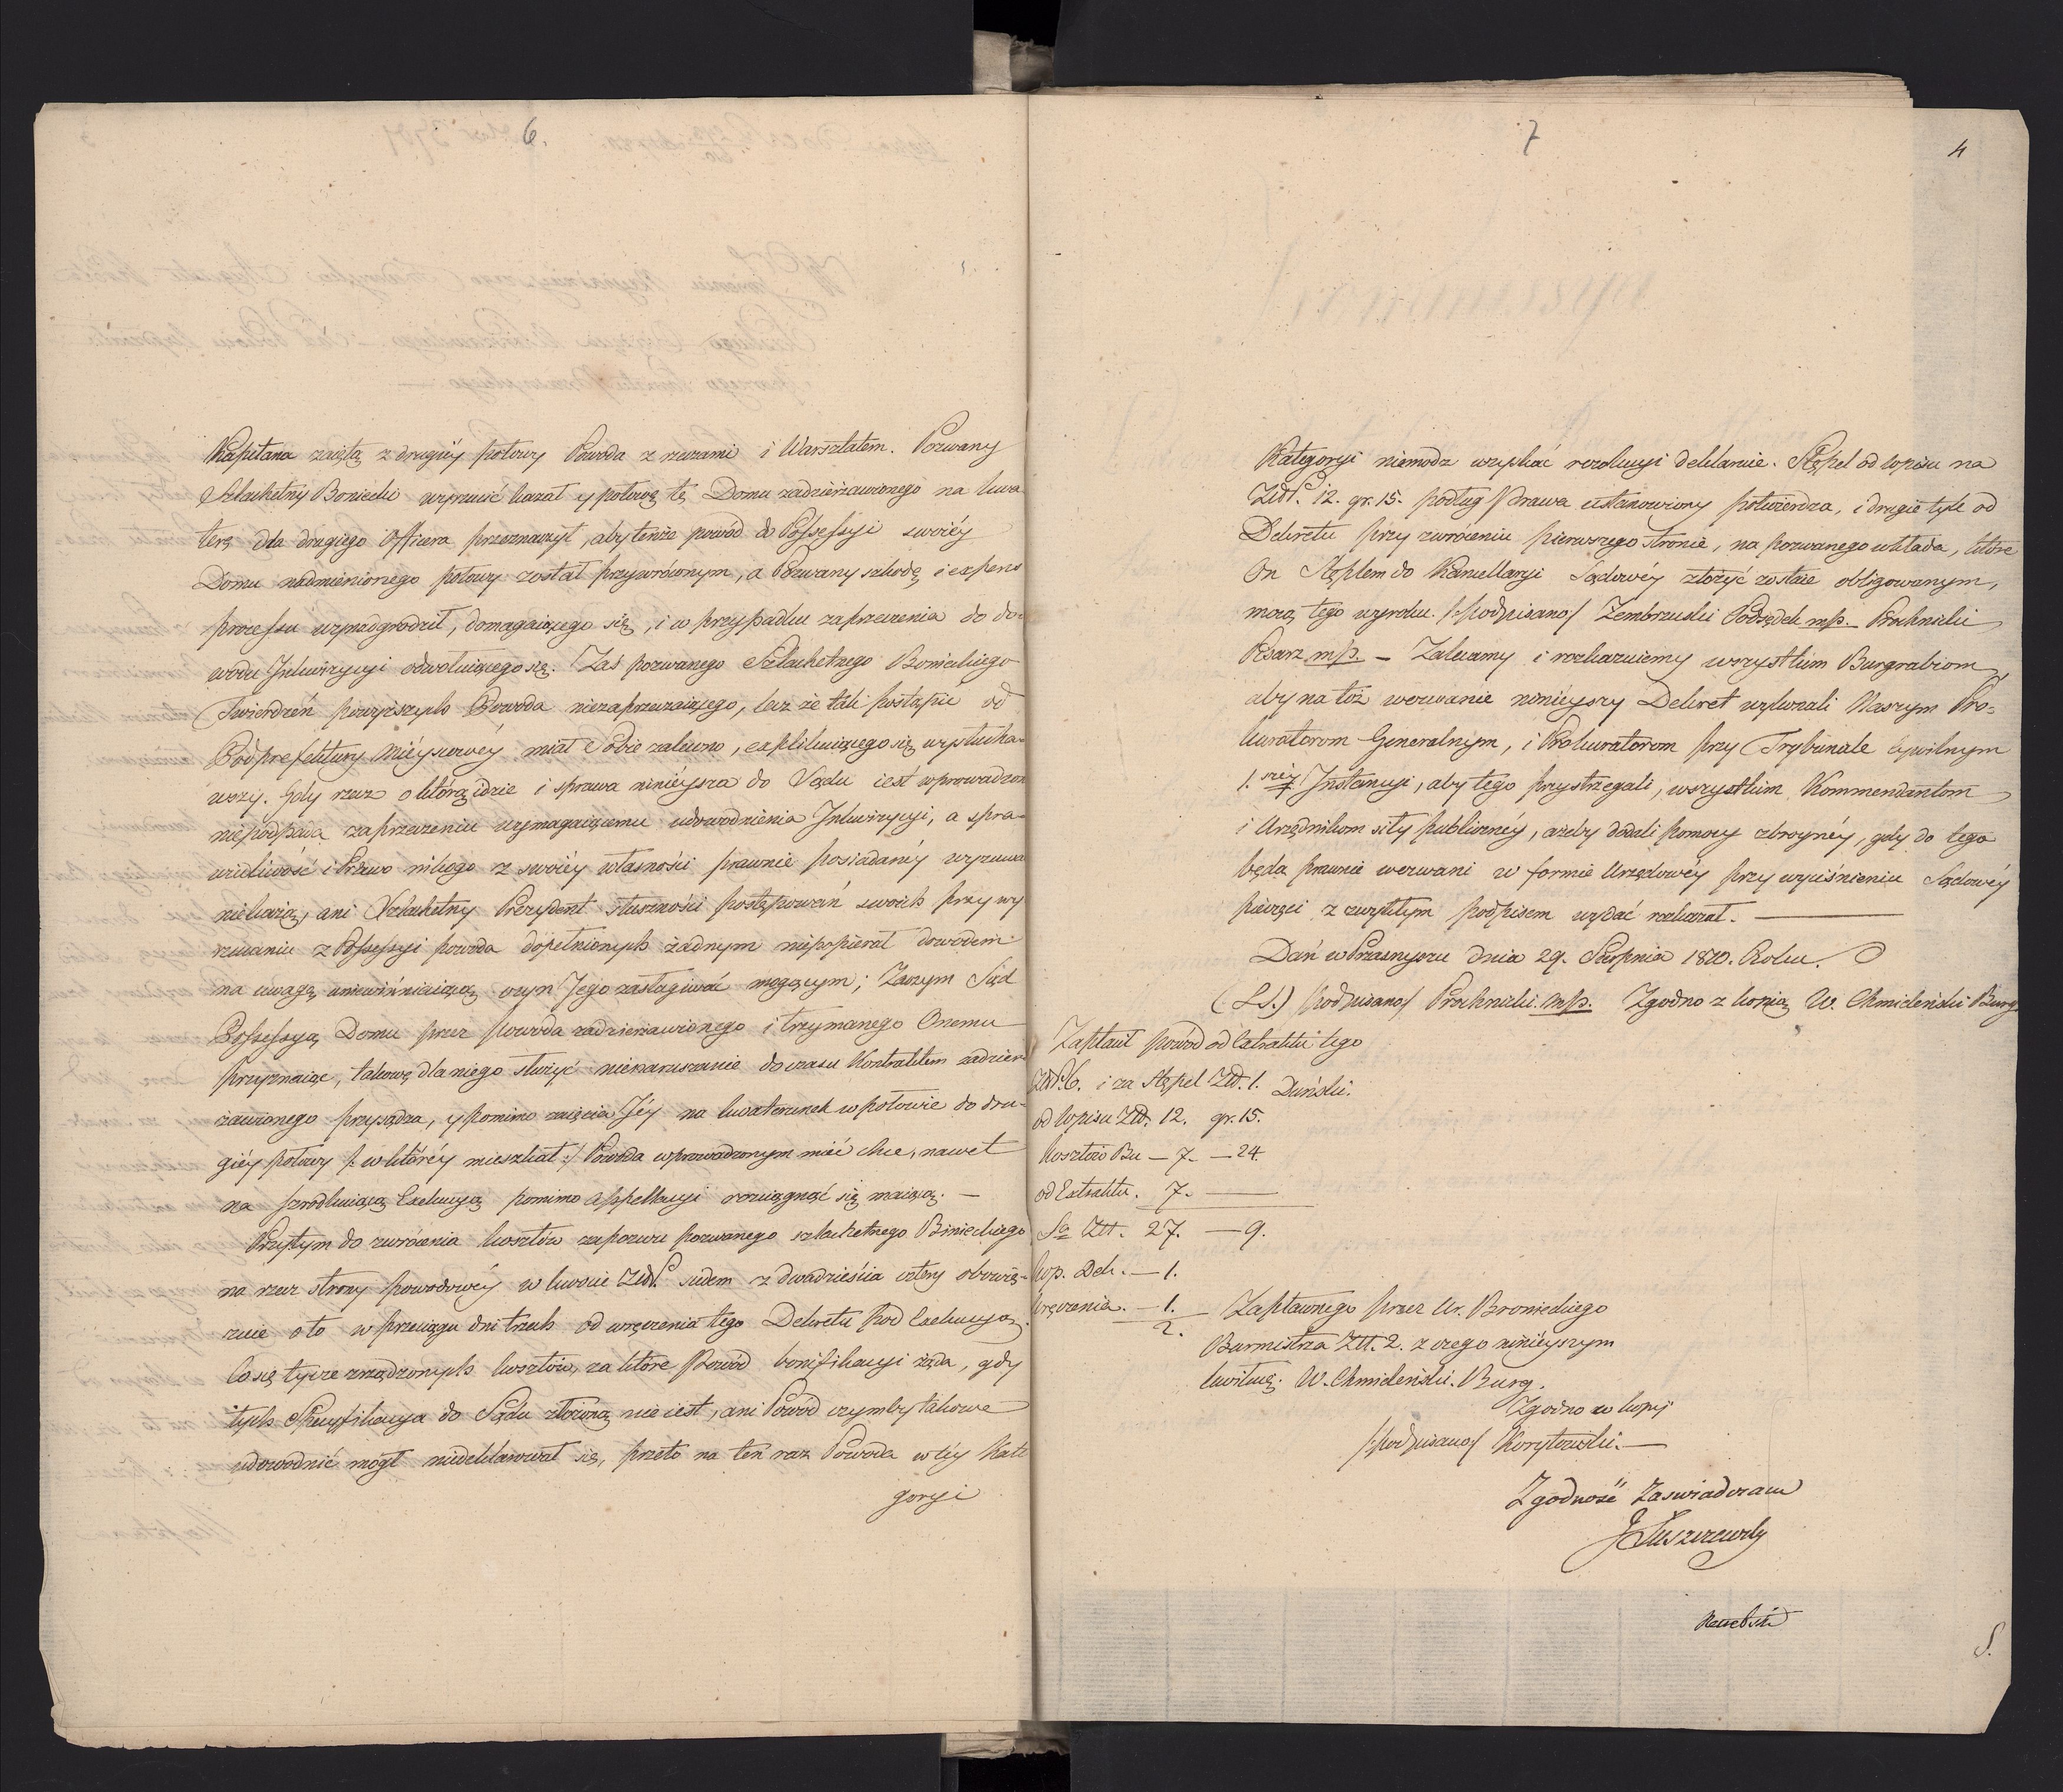 6.
Kapitana zaiętą z drugiey połowy Powoda z rzeczami i Warsztatem. Pozwany
Szlachetny Boniecki wyrzucić kazał y połowę tę Domu zadzierżawionego na kwa
terę dla drugiego Officera przeznaczył, aby tenże powód do Possessyi swoiéy
Domu nadmienionego połowy został przywróconym, a Pozwany szkodę i expens
processu wynadgrodził, domagaiącego się, i w przypadku zaprzeczenia do do=
wodu Inkwizycyi odwołuiącego się. Zaś pozwanego Szlachetnego Bonieckiego
Twierdzeń powyższych Powoda niezaprzeczaiącego, lecz że tak postąpić od
Podprefektury Miéyscowéy miał Sobie zalecono, explikuiącego się wysłucha=
wszy. Gdy rzecz o którą idzie i sprawa ninieysza do Sądu iest wprowadzon
niepodpada zaprzeczeniu wymagaiącemu udowodnienia Inkwizycyi, a spra=
wiedliwość i Prawo nikogo z swoiéy własności prawnie posiadanéy wyzuwa
niekażą, ani Szlachetny Prezydent słuszności postępowań swoich przy wy
rzucaniu z Possessyi powoda dopełnionych żadnym niepopierał dowodem
na uwagę uniewinniaiącą czyn Jego zasługiwać mogącym; Zaczym Sąd
Possessyą Domu przez powoda zadzierżawionego i trzymanego Onemu
przyznaiąc, takową dla niego służyć nienaruszanie do czasu Kontraktem zadzier=
żawionego przysądza, y pomimo zaięcia Jéy na kwaterunek w połowie do dru=
giéy połowy /: w któréy mieszkał :/ Powoda wprowadzonym mieć chce, nawet
na szrodkuiącą Exekucyą pomimo appellacyi rozciągnąć się maiącą. —
Przytym do zwrócenia kosztów zapozwu pozwanego szlachetnego Bonieckiego
na rzecz strony powodowéy w kwocie Złł. siedem z dwadzieścia cztery obowię=
zuie a to w przeciągu dni trzech od wręczenia tego Dekretu pod Exekucyą.
Co się tycze zrządzonych kosztów, za które Powód bonifikacyi żąda, gdy
tych Specyfikacya do Sądu złożoną nie iest, ani Powód czymby takowe
udowodnić mógł niedeklarował się, przeto na ten raz Powoda w téy Kate
goryi
7
4
Kategoryi niemodz uzyskać rezolucyi deklaruie. Stępel od wpisu na
Złł. 12. gr. 15. podług Prawa ustanowiony potwierdza, i drugie tyle od
Dekretu przy zwróceniu pierwszego stronie, na pozwanego wkłada, które
On Stęplem do Kancellaryi Sądowéy złożyć zostaie obligowanym,
mocą tego wyroku. /:podpisano/ Zembrzuski Podsędek mp. Prochnicki
Pisarz mp. — Zalecamy i rozkazuiemy wszystkim Burgrabiom,
aby na toż wezwanie ninieyszy Dekret uzkuteczniali Naszym Pro=
kuratorom Generalnym, i Prokuratorom przy Trybunale Cywilnym
1. széy Instancyi, aby tego przystrzegali, wszystkim Kommendantom
i Urzędnikom siły publicznéy, ażeby dodali pomocy zbroynéy, gdy do tego
będą prawnie wezwani w formie Urzędowéy przy wyciśnieniu Sądowéy
pieczęci z zwykłym podpisem wydać rozkazał. —
Dań w Przasnyszu dnia 29. Sierpnia 1810. Roku.
(LS.) podpisano/ Prochnicki. mp. Zgodno z kopią W. Chmieleński Burg.
Zapłacił powód od Extraktu tego
Złł. 6. i za Stępel Złł. 1. Duński.
od wpisu Złł. 12. gr. 15.
kosztów Bu — 7. — 24.
od Extraktu. 7. —
Sa Złł. 27. — 9.
kop. Dek. — 1.
wręczenia. — 1.
2.
Zapłaconego przez Ur. Bronieckiego
Burmistrza Złł. 2. z czego ninieyszym
kwituię. W. Chmieleński. Burg.
Zgodno w kopij
/:podpisano/ Korytowski. —
Zgodność Zaswiadczam